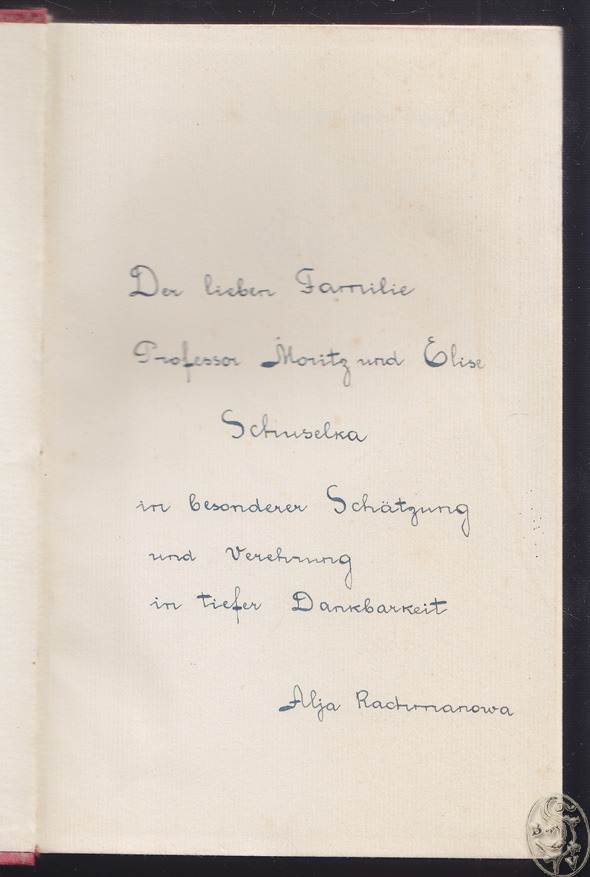 Der lieben Familie
Professor Moritz und Elise
Schuselka
in besonderer Schätzung
und Verehrung
in tiefer Dankbarkeit
Alja Rachmanowa